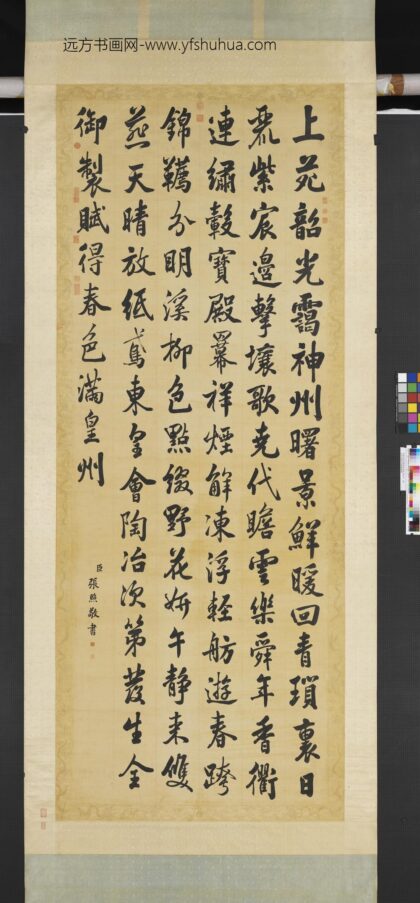 远方书画网-www.yfshuhua.com
上苑韶光霭神州曙景鮮暖回青瑣裏日
麗紫宸邉擊壤歌堯代瞻雲樂舜年香衢
連繡轂寶殿羃祥煙解凍浮輕舫遊春跨
錦韉分明溪柳色點綴野花妍午靜来雙
燕天晴放紙鳶東皇會陶冶次第發生全
御製賦得春色滿皇州
臣張照敬書